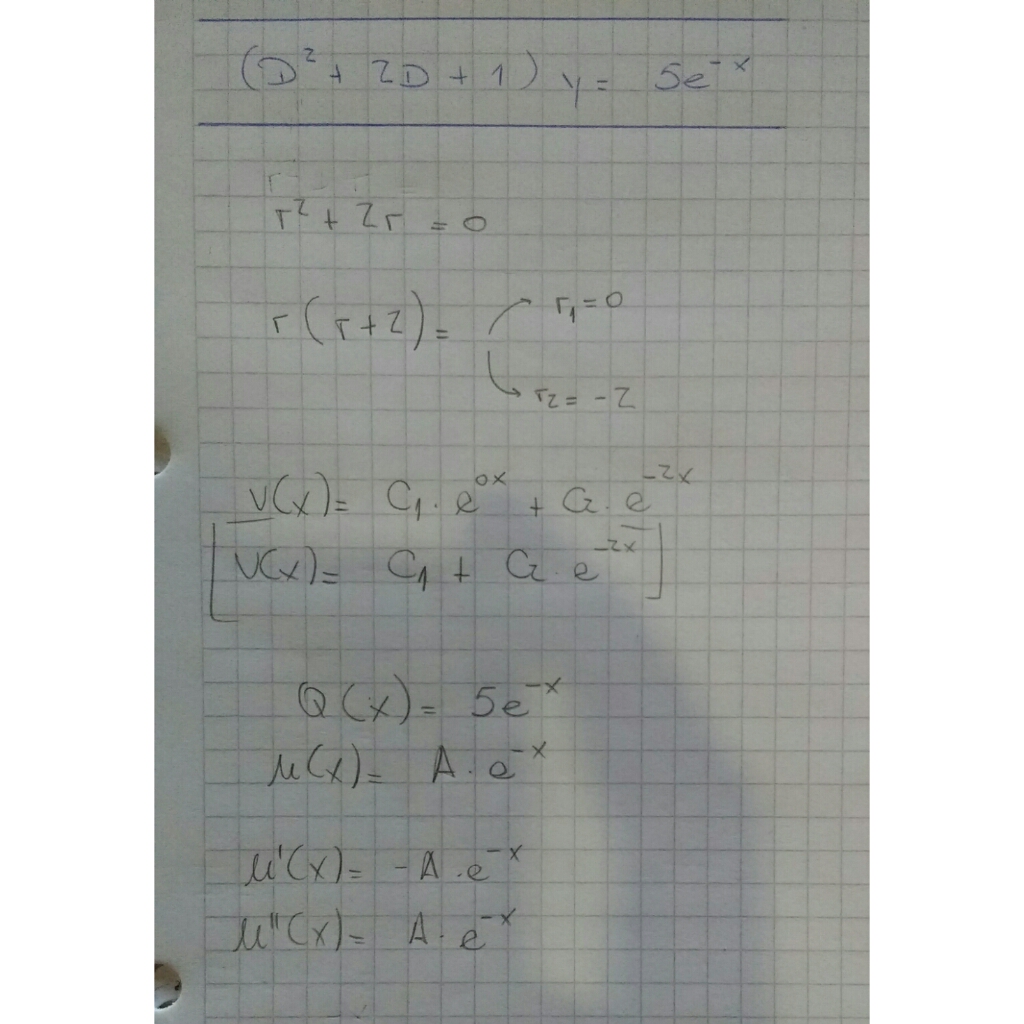 (D² + 2D + 1) y = 5e⁻ˣ
r² + 2r = 0
r (r + 2) =
r₁ = 0
r₂ = -2
V(x) = C₁ · e⁰ˣ + C₂ · e⁻²ˣ
V(x) = C₁ + C₂ · e⁻²ˣ
Q(x) = 5e⁻ˣ
μ(x) = A · e⁻ˣ
μ'(x) = -A · e⁻ˣ
μ''(x) = A · e⁻ˣ